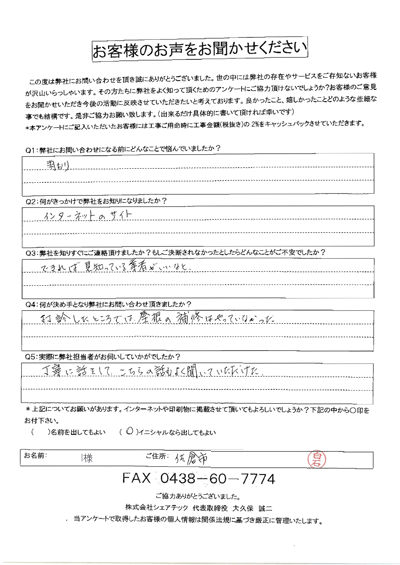 お客様のお声をお聞かせください
この度は弊社にお問い合わせを頂き誠にありがとうございました。世の中には弊社の存在やサービスをご存知ないお客様
が沢山いらっしゃいます。その方たちに弊社をよく知って頂くためのアンケートにご協力頂けないでしょうか?お客様のご意見
をお聞かせいただき今後の活動に反映させていただきたいと考えております。良かったこと、嬉しかったことどのような些細な
事でも結構です。是非ご協力お願い致します。(出来るだけ具体的に書いて頂ければ幸いです)
*本アンケートにご記入いただいたお客様には工事ご用命時に工事金額(税抜き)の2%をキャッシュバックさせていただきます。
Q1:弊社にお問い合わせになる前にどんなことで悩んでいましたか?
雨もり
Q2:何がきっかけで弊社をお知りになりましたか?
インターネットのサイト
Q3:弊社を知りすぐにご連絡頂けましたか?もしご決断されなかったとしたらどんなことがご不安でしたか?
できれば見知っている業者がいいなと、
Q4:何が決め手となり弊社にお問い合わせ頂きましたか?
打診したところでは、屋根の補修はやっていなかった。
Q5:実際に弊社担当者がお伺いしていかがでしたか?
丁寧に話をして、こちらの話もよく聞いていただけた。
*上記についてお願いがあります。インターネットや印刷物に掲載させて頂いてもよろしいでしょうか?下記の中から〇印を
お付け下さい。
( )名前を出してもよい (〇)イニシャルなら出してもよい
お名前: 様 ご住所: 佐倉市 白石
FAX 0438-60-7774
ご協力ありがとうございました。
株式会社シェアテック 代表取締役 大久保 誠二
当アンケートで取得したお客様の個人情報は関係法規に基づき厳正に管理いたします。